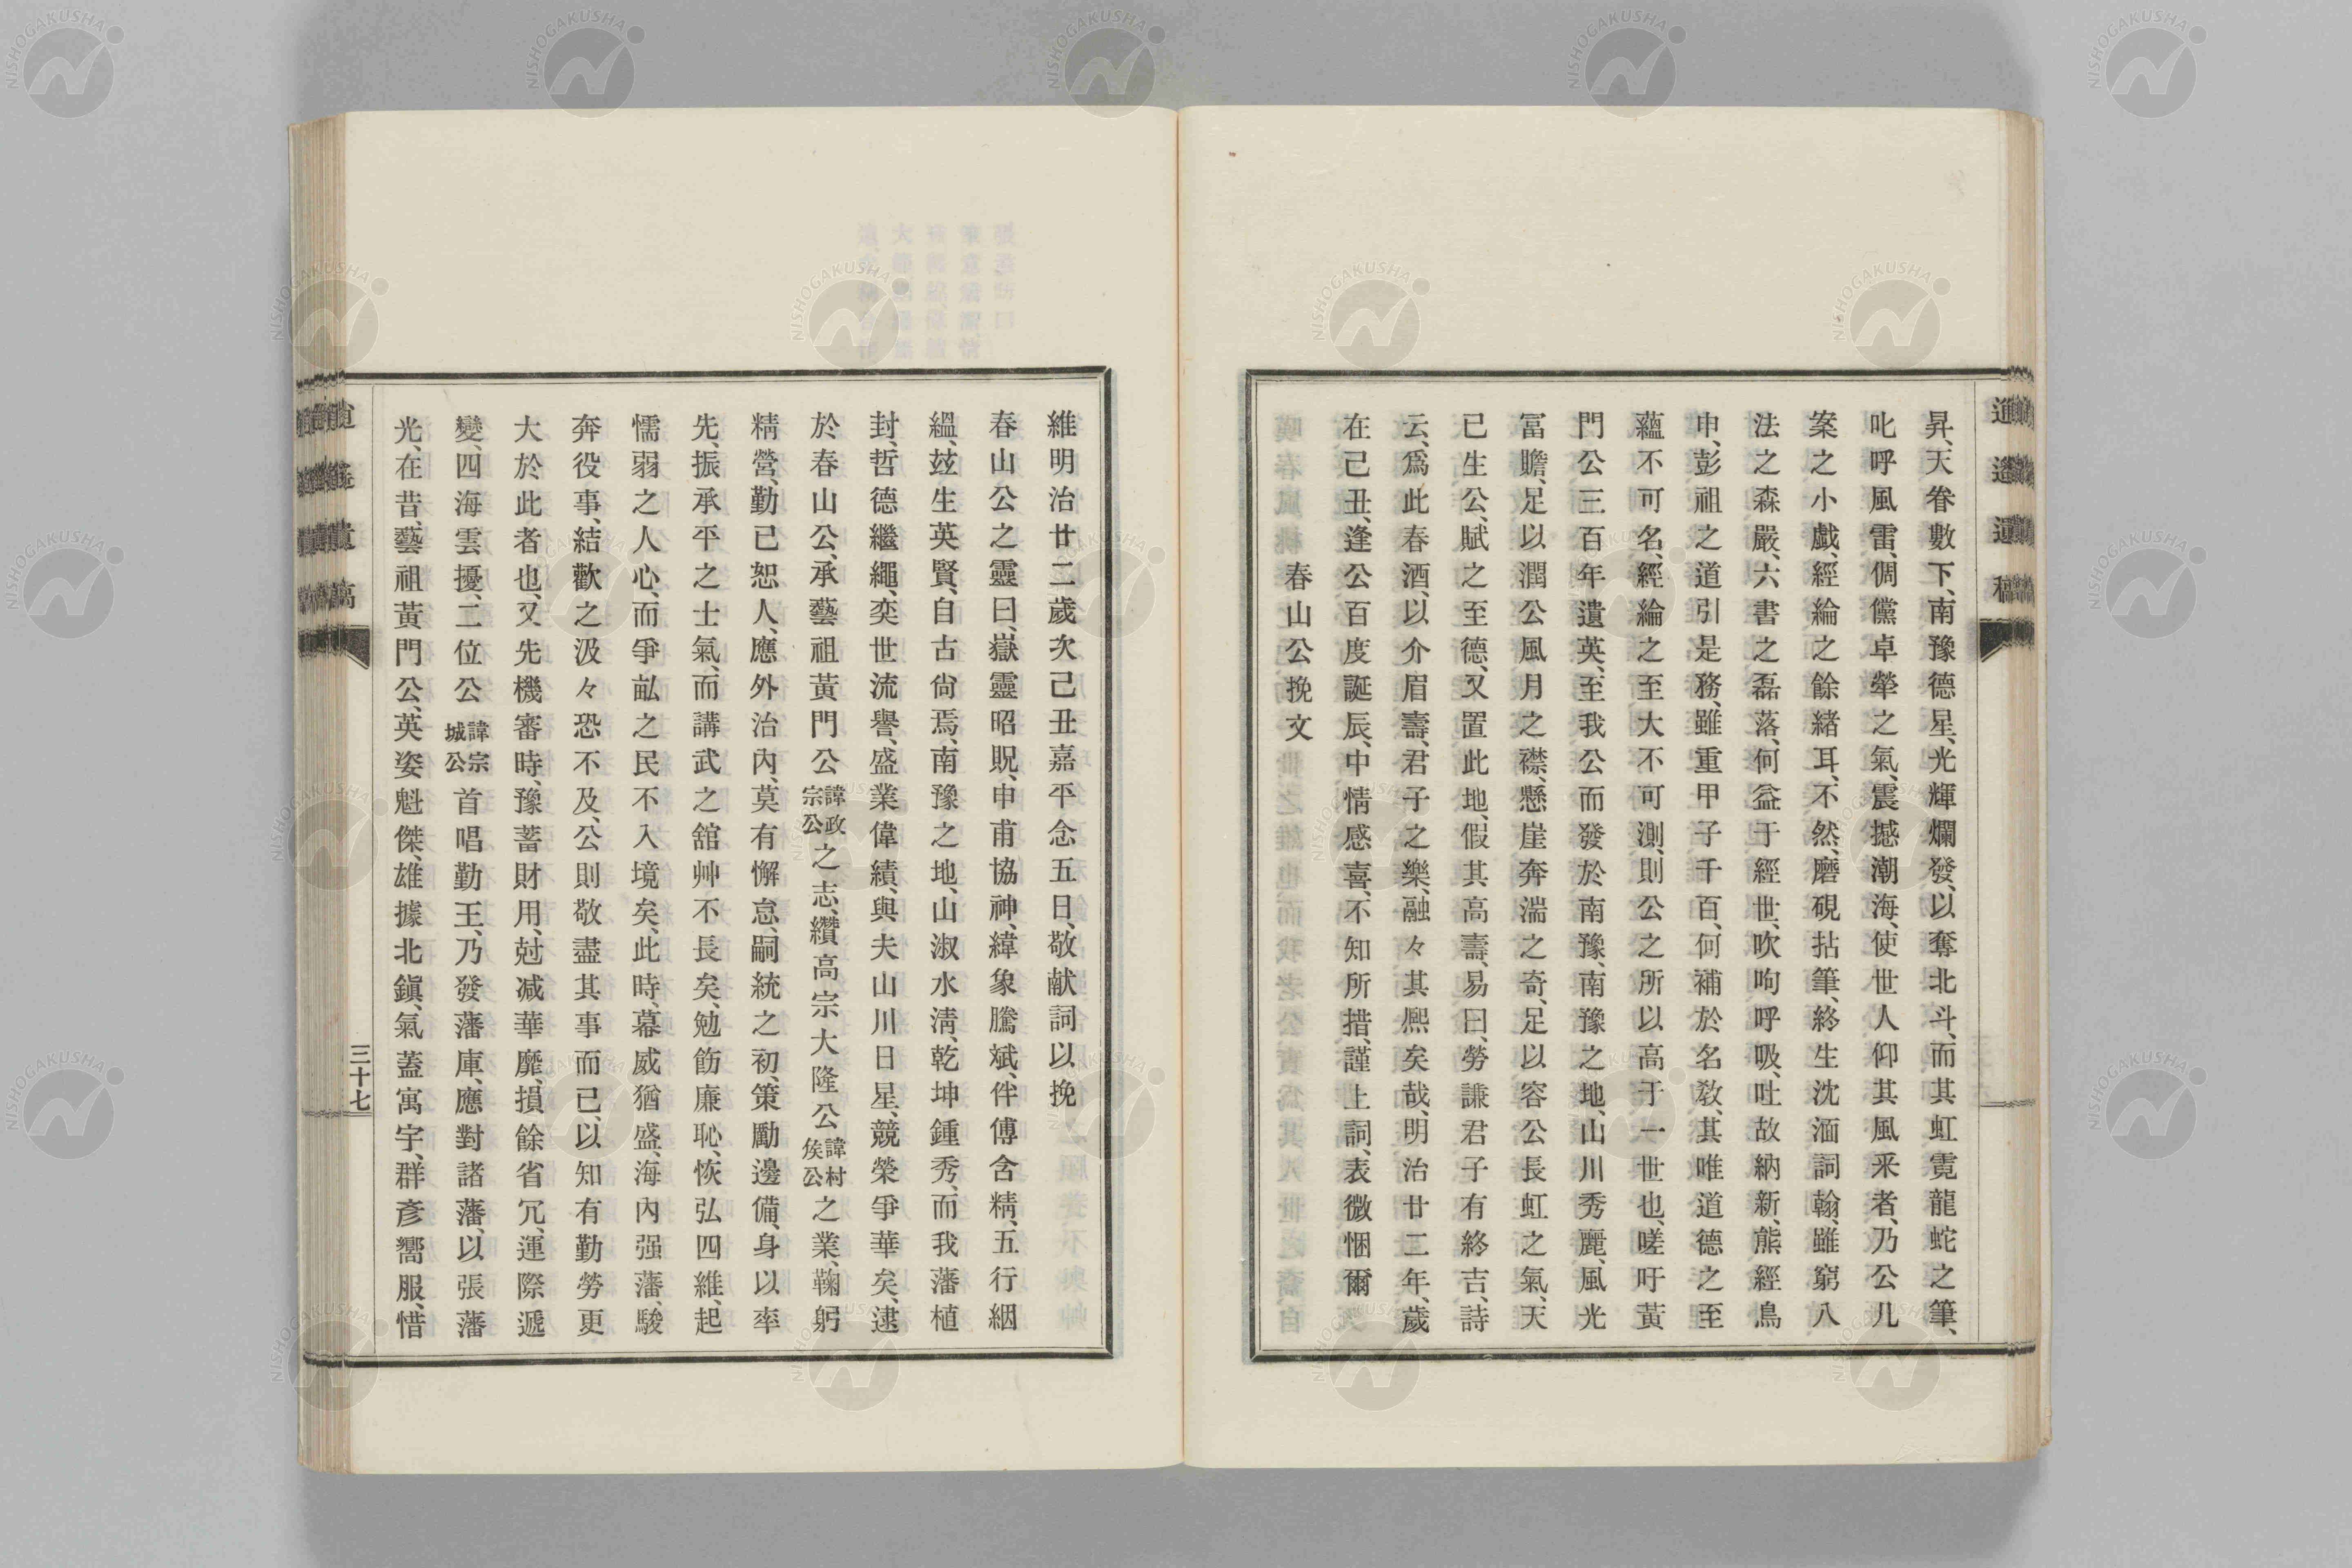 昇、天眷數下、南豫德星、光輝爛發、以奪北斗、而其虹霓龍蛇之筆、
叱呼風雷、倜儻卓犖之氣、震撼潮海、使世人仰其風釆者、乃公几
案之小戲、經綸之餘緒耳、不然、磨硯拈筆、終生沈湎詞翰、雖窮八
法之森嚴、六書之磊落、何益于經世、吹呴呼吸、吐故納新、熊經鳥
申、彭祖之道引是務、雖重甲子千百、何補於名敎、其唯道德之至
蘊不可名、經綸之至大不可測、則公之所以高于一世也、嗟吁黃
門公三百年遺英、至我公而發於南豫、南豫之地、山川秀麗、風光
富贍、足以潤公風月之襟、懸崖奔湍之奇、足以容公長虹之氣、天
已生公、賦之至德、又置此地、假其高壽、易曰、勞謙君子有終吉、詩
云、爲此春酒、以介眉壽、君子之樂、融々其熈矣哉、明治廿二年、歲
在己丑、逢公百度誕辰、中情感喜、不知所措、謹上詞、表微悃爾
春山公挽文
維明治廿二歲次己丑嘉平念五日、敬献詞以挽
春山公之靈曰、嶽靈昭貺、申甫協神、緯象騰斌、伴傅含精、五行絪
縕、玆生英賢、自古尙焉、南豫之地、山淑水淸、乾坤鍾秀、而我藩植
封、哲德繼繩、奕世流譽、盛業偉績、與夫山川日星、競榮爭華矣、逮
於春山公、承藝祖黃門公諱政宗公之志、纘高宗大隆公諱村矦公之業、鞠躬
精營、勤己恕人、應外治內、莫有懈怠、嗣統之初、策勵邊備、身以率
先、振承平之士氣、而講武之舘艸不長矣、勉飭廉恥、恢弘四維、起
懦弱之人心、而爭畆之民不入境矣、此時、幕威猶盛、海內强藩、駿
奔役事、結歡之汲々恐不及、公則敬盡其事而已、以知有勤勞更
大於此者也、又先機審時、豫蓄財用、尅减華靡、損餘省冗、運際遞
變、四海雲擾、二位公諱宗城公首唱勤王、乃發藩庫、應對諸藩、以張藩
光、在昔、藝祖黃門公、英姿魁傑、雄據北鎭、氣蓋寓宇、群彥嚮服、惜
三十七